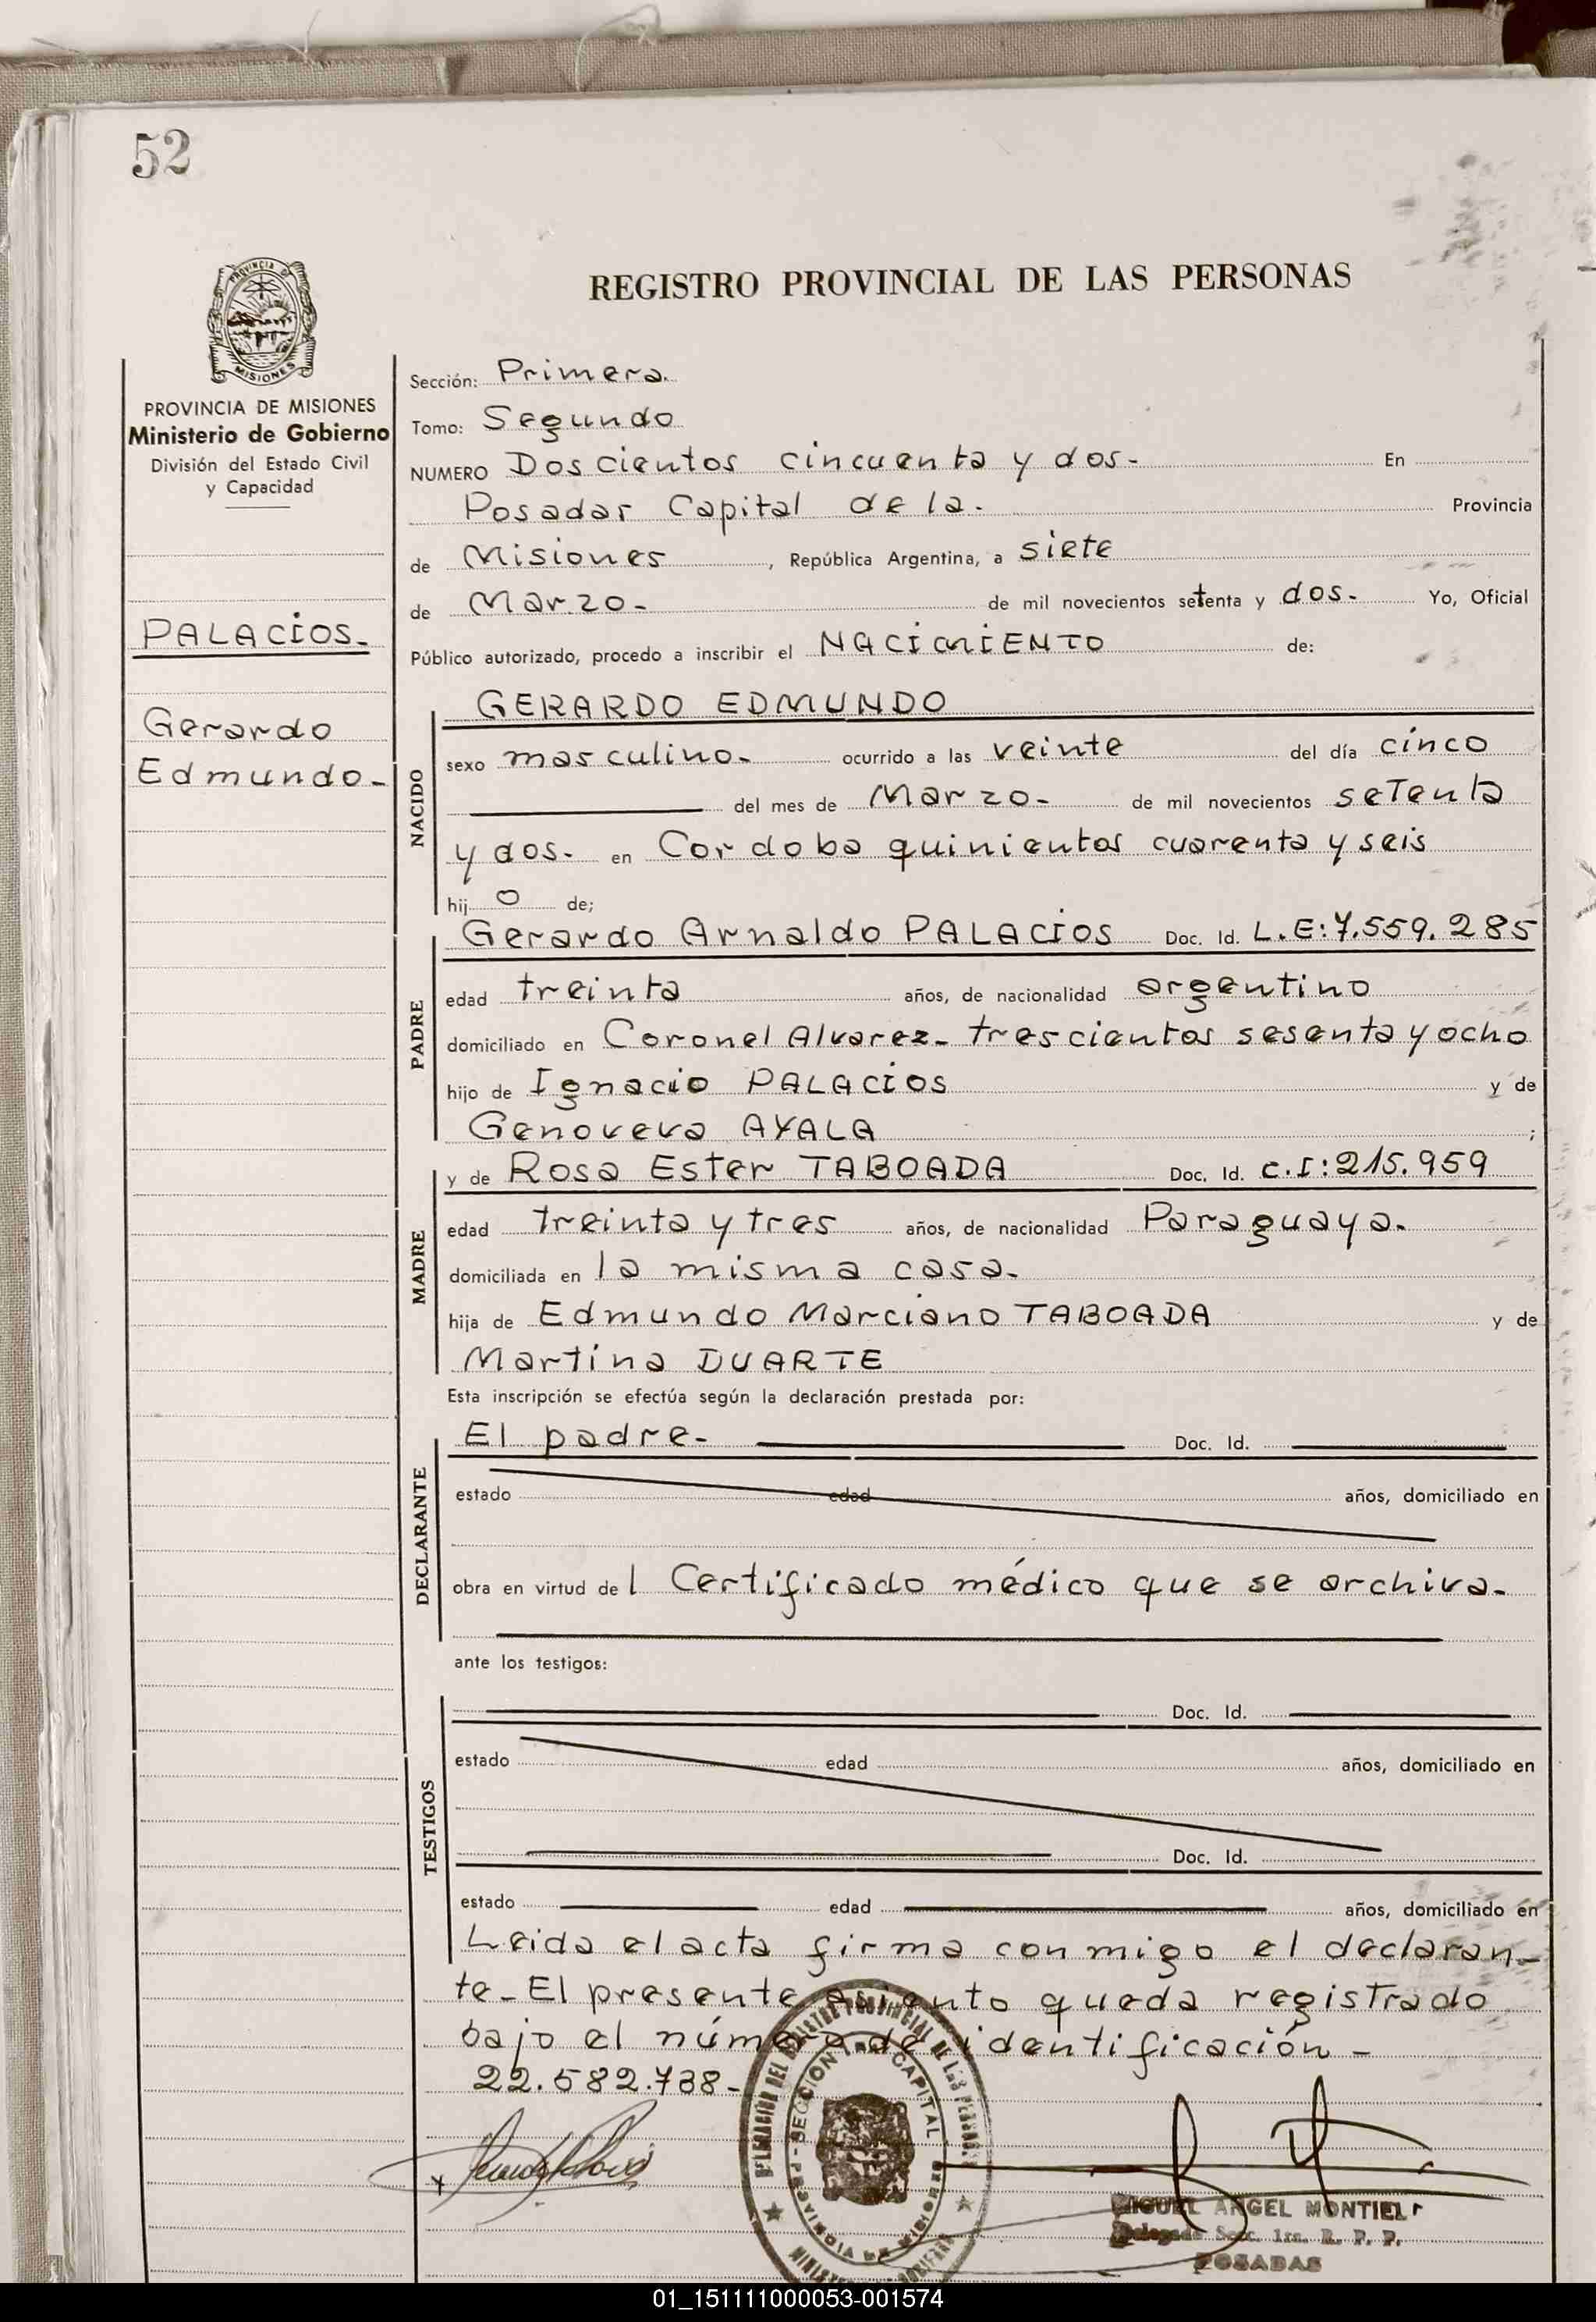 52
REGISTRO PROVINCIAL DE LAS PERSONAS
PROVINCIA DE MISIONES
PROVINCIA DE MISIONES
Ministerio de Gobierno
División del Estado Civil
y Capacidad
PALACIOS.
Gerardo
Edmundo-
Sección: Primera.
Tomo: Segundo
NUMERO Doscientos cincuenta y dos- En
Posadas Capital de la. Provincia
de Misiones, República Argentina, a siete
de Marzo- de mil novecientos setenta y dos. Yo, Oficial
Público autorizado, procedo a inscribir el NACIMIENTO de:
NACIDO
GERARDO EDMUNDO
sexo masculino- ocurrido a las veinte del día cinco
del mes de Marzo- de mil novecientos setenta
y dos. en Cordoba quinientos cuarenta y seis
hij o de;
PADRE
Gerardo Arnaldo PALACIOS Doc. Id. L.E:7.559.285
edad treinta años, de nacionalidad argentino
domiciliado en Coronel Alvarez- trescientos sesenta y ocho
hijo de Ignacio PALACIOS y de
Genoveva AYALA ;
MADRE
y de Rosa Ester TABOADA Doc. Id. C.I:215.959
edad treinta y tres años, de nacionalidad Paraguaya.
domiciliada en la misma casa.
hija de Edmundo Marciano TABOADA y de
Martina DUARTE
Esta inscripción se efectúa según la declaración prestada por:
DECLARANTE
El padre- Doc. Id.
estado edad años, domiciliado en
obra en virtud de l Certificado médico que se archiva-
ante los testigos:
TESTIGOS
Doc. Id.
estado edad años, domiciliado en
Doc. Id.
estado edad años, domiciliado en
Leida el acta firma conmigo el declaran-
te- El presente asiento queda registrado
bajo el número de identificación-
22.582.738-
DELEGACION DEL REGISTRO PROVINCIAL DE LAS PERSONAS
SECCION 1ra CAPITAL
PROVINCIA DE MISIONES
MIGUEL ANGEL MONTIEL
Delegado Secc. 1ra. R. P. P.
POSADAS
01_151111000053-001574